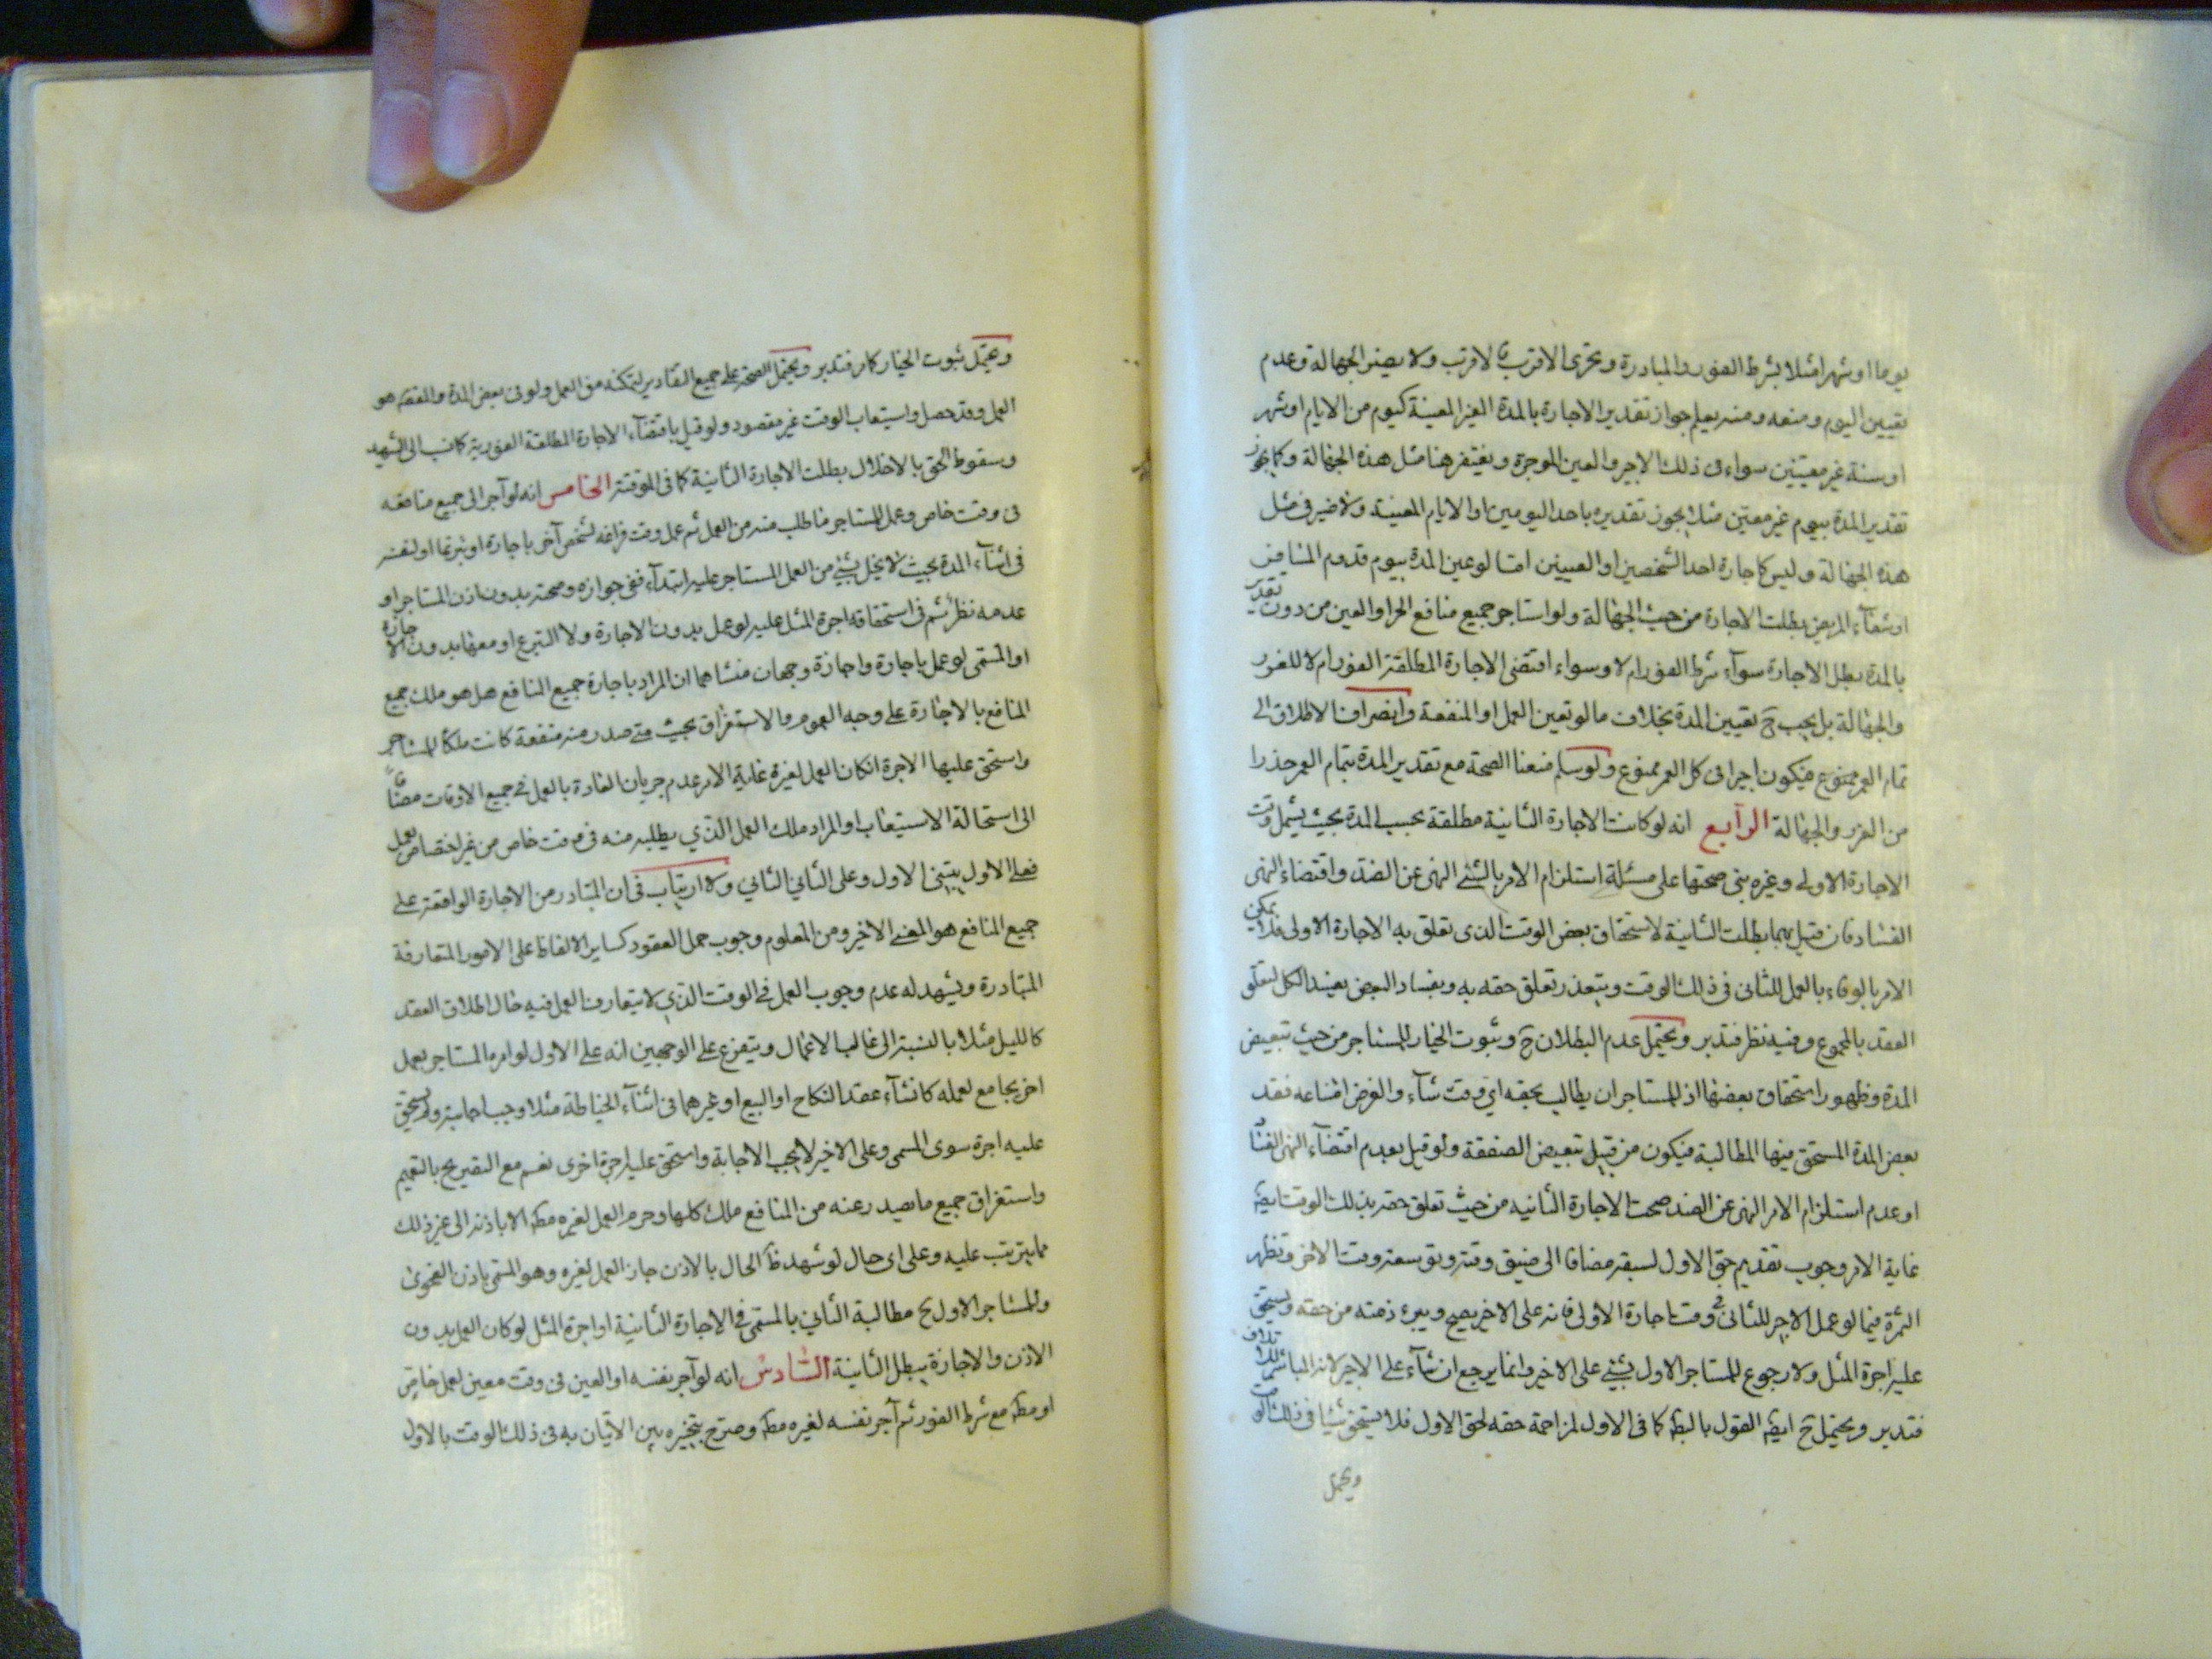 يوما او شهرا مثلا بشرط الفور والمبادرة وتحرى الاقرب فالاقرب ولا يضر الجهالة وعدم
تعيين اليوم ومنعه ومنه يعلم جواز تقدير الاجارة بالمدة الغير المعينة كيوم من الايام او شهر
او سنة غير معينين سواء فى ذلك الاجير والعين الموجرة ويغتفر هنا مثل هذه الجهالة وكما يجوز
تقدير المدة بيوم غير معين مثلا يجوز تقديره باحد اليومين او الايام المعينة ولا ضير فى مثل
هذه الجهالة وليس كاجارة احد الشخصين او العبيدين امتا لو عين المدة بيوم قدوم المسافر
او شفاء المريض بطلت الاجارة من حيث الجهالة ولو استاجر جميع منافع الحر او العين من دون تقدير
بالمدة بطل الاجارة سوآء شرط الفور ام لا وسواء اقتضى الاجارة المطلقة الفور ام لا للغرر
والجهالة بل يجب ح تعيين المدة بخلاف ما لو تعين العمل او المنفعة وانصراف الاطلاق الى
تمام العمر ممنوع فيكون اجيرا فى كل العمر ممنوع ولو سلم منعنا الصحة مع تقدير المدة بتمام العمر حذرا
من الغرر والجهالة الرآبع انه لو كانت الاجارة الثانية مطلقة بحسب المدة بحيث يشمل وقت
الاجارة الاولى وغيره بنى صحتها على مسئلة استلزام الامر بالشئ النهى عن الضد واقتضاء النهى
الفساد فان قيل بهما بطلت الثانية لاستحقاق بعض الوقت الذى تعلق به الاجارة الاولى فلا يمكن
الامر بالوفاء بالعمل للثانى فى ذلك الوقت ويتعذر تعلق حقه به وبفساد البعض يفسد الكل لتعلق
العقد بالمجموع وفيه نظر فتدبر ويحتمل عدم البطلان ح وثبوت الخيار للمستاجر من حيث تبعيض
المدة وظهور استحقاق بعضها اذ للمستاجر ان يطالب بحقه اي وقت شآء والفرض امتناعه فقد
بعض المدة المستحق فيها المطالبة فيكون من قبيل تبعيض الصفقة ولو قيل بعدم اقتضآء النهى الفساد
او عدم استلزام الامر النهى عن الضد صحت الاجارة الثانيه من حيث تعلق حقه بذلك الوقت ايضا
غاية الامر وجوب تقديم حق الاول لسبقه مضافا الى ضيق وقته وتوسعة وقت الاخر وتظهر
الثمرة فيما لو عمل الاجير للثانى فى وقت اجارة الاولى فانه على الاخير يصح ويبرء ذمته من حقه ويستحق
عليه اجرة المثل ولا رجوع للمستاجر الاول بشئ على الاخير وانما يرجع ان شآء على الاجير لانه المباشر للاتلاف
فتدبر ويحتمل ح ايضا القول بالبط كما فى الاول لمزاحمة حقه لحق الاول فلا يستحق شيئا فى ذلك الوقت
ويحتمل
ويحتمل ثبوت الخيار كما مر فتدبر ويحتمل الصحة على جميع التقادير لتمكنه من العمل ولو فى بعض المدة والمقصود هو
العمل وقد حصل واستيعاب الوقت غير مقصود ولو قيل باقتضآء الاجارة المطلقة الفورية كما نسب الى الشهيد
وسقوط الحق بالاخلال بطلت الاجارة الثانية كما فى الموقتة الخامس انه لو آجر الى جميع منافعه
فى وقت خاص وعمل للمستاجر ما طلب منه من العمل ثم عمل وقت فراغه لشخص آخر باجارة او تبرعا او لنفسه
فى اثنآء المدة بحيث لا يخل بشئ من العمل المستاجر عليه ابتدآء ففى جوازه وصحته بدون اذن المستاجر او
عدمه نظر ثم فى استحقاقه اجرة المثل عليه لو عمل بدون الاجارة ولا التبرع او معها بدون الاجازة
او المسمى لو عمل باجارة واجازة وجهان منشاهما ان المراد باجارة جميع المنافع هل هو ملك جميع
المنافع بالاجارة على وجه العموم والاستغراق بحيث متى صدر منه منفعة كانت ملكا للمستاجر
واستحق عليها الاجرة ان كان العمل لغيره غاية الامر عدم جريان العادة بالعمل فى جميع الاوقات مضافا
الى استحالة الاستيعاب او المراد ملك العمل الذى يطلبه منه فى وقت خاص من غير اختصاص بعمل
فعلى الاول يبتنى الاول وعلى الثاني الثاني ولا ارتياب فى ان المتبادر من الاجارة الواقعة على
جميع المنافع هو المعنى الاخير ومن المعلوم وجوب حمل العقود كساير الالفاظ على الامور المتعارفة
المتبادرة ويشهد له عدم وجوب العمل فى الوقت الذى لا يتعارف العمل فيه حال اطلاق العقد
كالليل مثلا بالنسبة الى غالب الاعمال ويتفرع على الوجهين انه على الاول لو امره المستاجر بعمل
اخر يجامع لعمله كانشآء عقد النكاح او البيع او غيرهما فى اثنآء الخياطة مثلا وجب اجابته ولم يستحق
عليه اجرة سوى المسمى وعلى الاخير لا يجب الاجابة واستحق عليه اجرة اخرى نعم مع التصريح بالتعميم
واستغراق جميع ما يصدر عنه من المنافع ملك كلها وحرم العمل لغيره مط الا باذنه الى غير ذلك
ما يترتب عليه وعلى اى حال لو شهد ظ الحال بالاذن جاز العمل لغيره وهو المسمى باذن الفحوى
وللمستاجر الاول ح مطالبة الثاني بالمسمى فى الاجارة الثانية او اجرة المثل لو كان العمل بدون
الاذن والاجازة يبطل الثانية السادس انه لو آجر نفسه او العين فى وقت معين لعمل خاص
او مط مع شرط الفور ثم آجر نفسه لغيره مط وصرح بتخييره بين الاتيان به فى ذلك الوقت بالاول